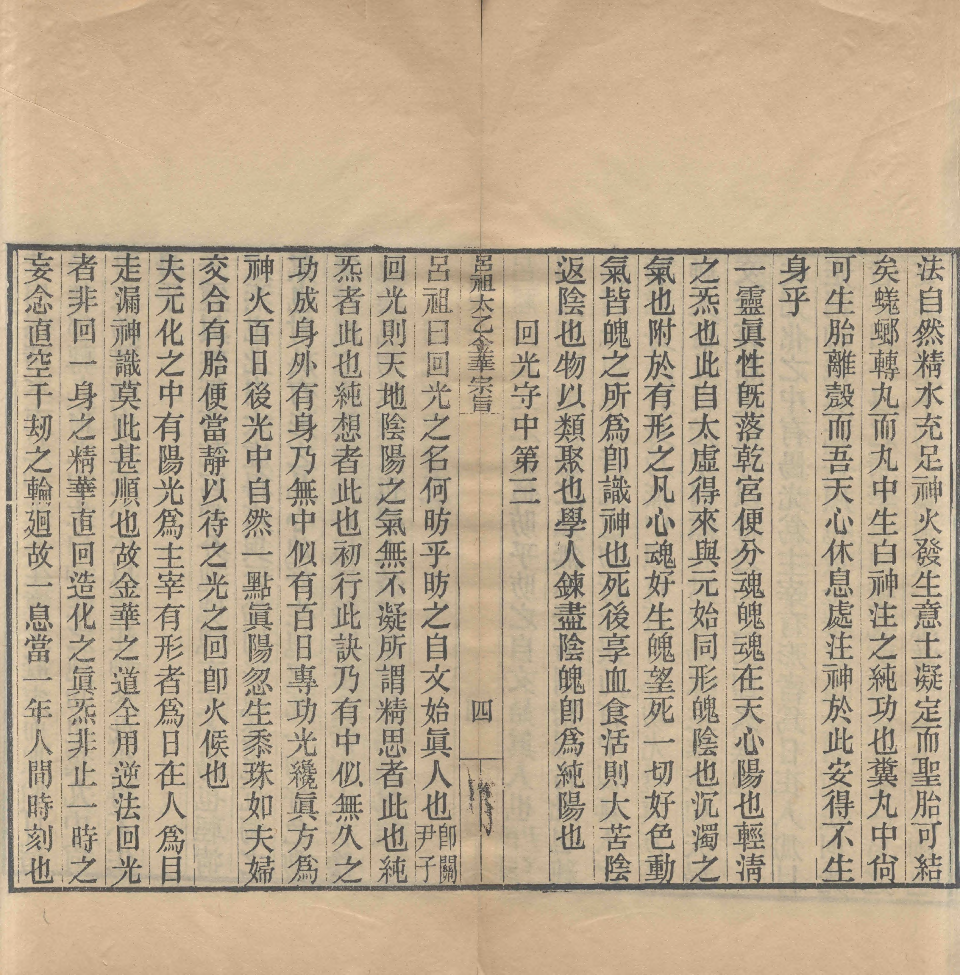 法自然精水充足神火發生意土凝定而聖胎可結
矣蟯螂轉丸而丸中生白神注之純功也糞丸中尙
可生胎離殼而吾天心休息處注神於此安得不生
身乎
一靈眞性旣落乾宮便分魂魄魂在天心陽也輕淸
之炁也此自太虛得來與元始同形魄陰也沉濁之
氣也附於有形之凡心魂好生魄望死一切好色動
氣皆魄之所爲卽識神也死後享血食活則大苦陰
返陰也物以類聚也學人鍊盡陰魄卽爲純陽也
回光守中第三
呂祖太乙金華宗旨 四
呂祖曰回光之名何昉乎昉之自文始眞人也卽關尹子
回光則天地陰陽之氣無不凝所謂精思者此也純
炁者此也純想者此也初行此訣乃有中似無久之
功成身外有身乃無中似有百日專功光纔眞方爲
神火百日後光中自然一點眞陽忽生黍珠如夫婦
交合有胎便當靜以待之光之回卽火候也
夫元化之中有陽光爲主宰有形者爲日在人爲目
走漏神識莫此甚順也故金華之道全用逆法回光
者非回一身之精華直回造化之眞炁非止一時之
妄念直空千劫之輪廻故一息當一年人間時刻也